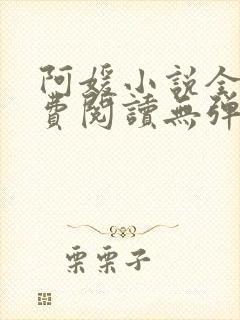 阿媛小說全
費閱讀無彈
栗栗子